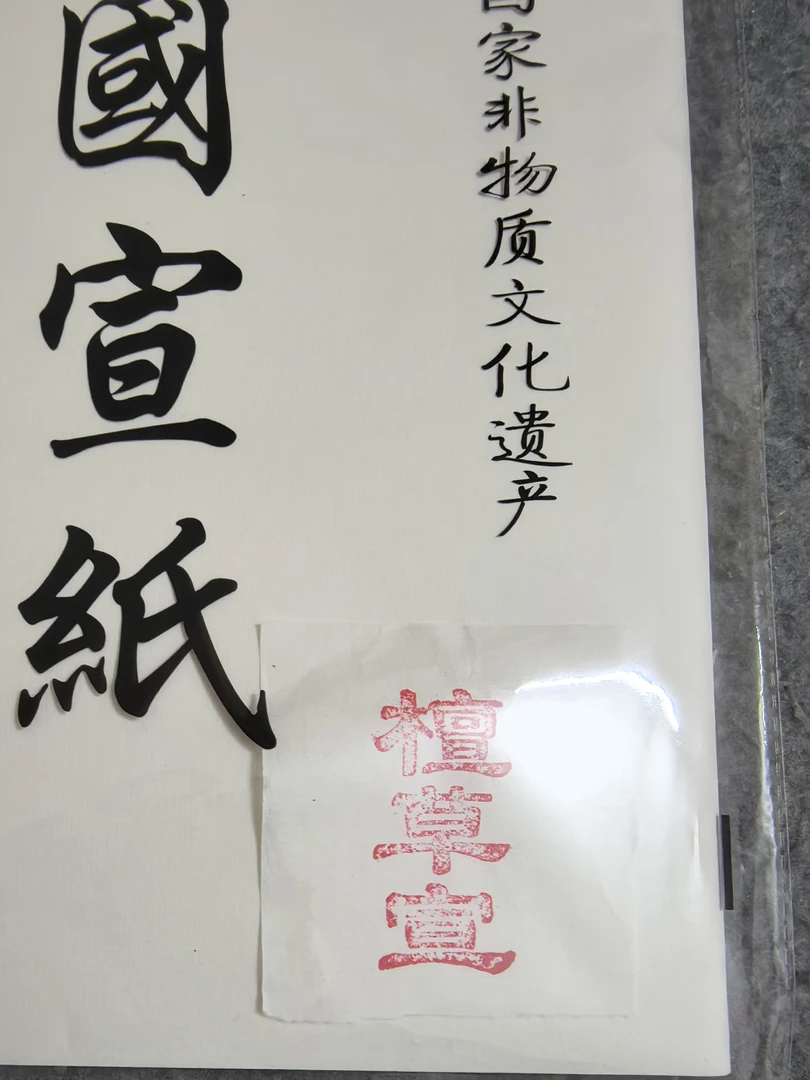 國宣紙
国家非物质文化遗产
檀草宣